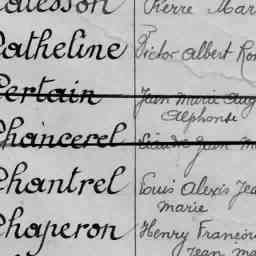 Pierre Mar
Patheline Victor Albert Ro
Certain Jean Marie Aug
Alphonse
Chancerel Jean M
Chantrel Louis Alexis Jea
Marie
Chaperon Henry François
Jean Ma